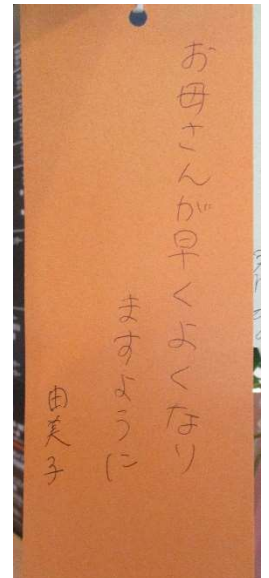 お母さんが早くよくなり
ますように
由美子